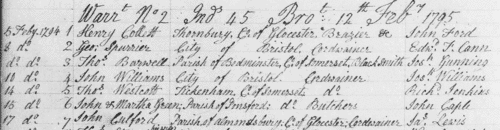 Warrt. No 2 Ind 45 Brot. 12th Feby 1795
5 Feby 1794 1 Henry Collett Thornbury, Co. of Glocester Brazier &c John Ford
8 do 2 Geo. Spurrier City of Bristol. Cordwainer Edwd. T. Cann
do do 3 Thos. Barwell Parish of Bedminster, C. of Somerset, Black Smith Jos. Gunning
10 do 4 John Williams City of Bristol. Cordwainer Jos. Williams
14 do 5 Thos. Westcott Tickenham, C. of Somerset do Richd. Jenkins
16 do 6 John & Martha Green, Parish of Butchers John Caple
17 do 7 John Parish of Almondsbury, C. of Glocester, Cordwainer Jas. Lewis